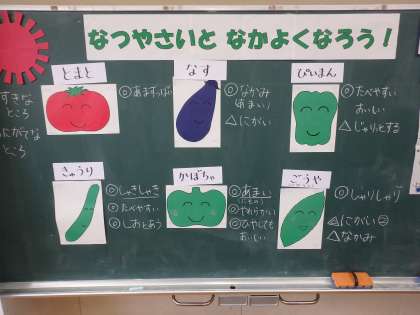 なつやさいと なかよくなろう！
すきな
ところ
にがてな
ところ
とまと
◎あますっぱい
なす
◎なかみ
(あまい)
△にがい
ぴいまん
◎たべやすい
おいしい
△じゃりっとする
きゅうり
◎しゃきしゃき
◎たべやすい
◎しおとあう
かぼちゃ
◎あまい
◎やわらかい
◎ひやしても
おいしい
ごうや
◎しゃりしゃり
△にがい
△なかみ